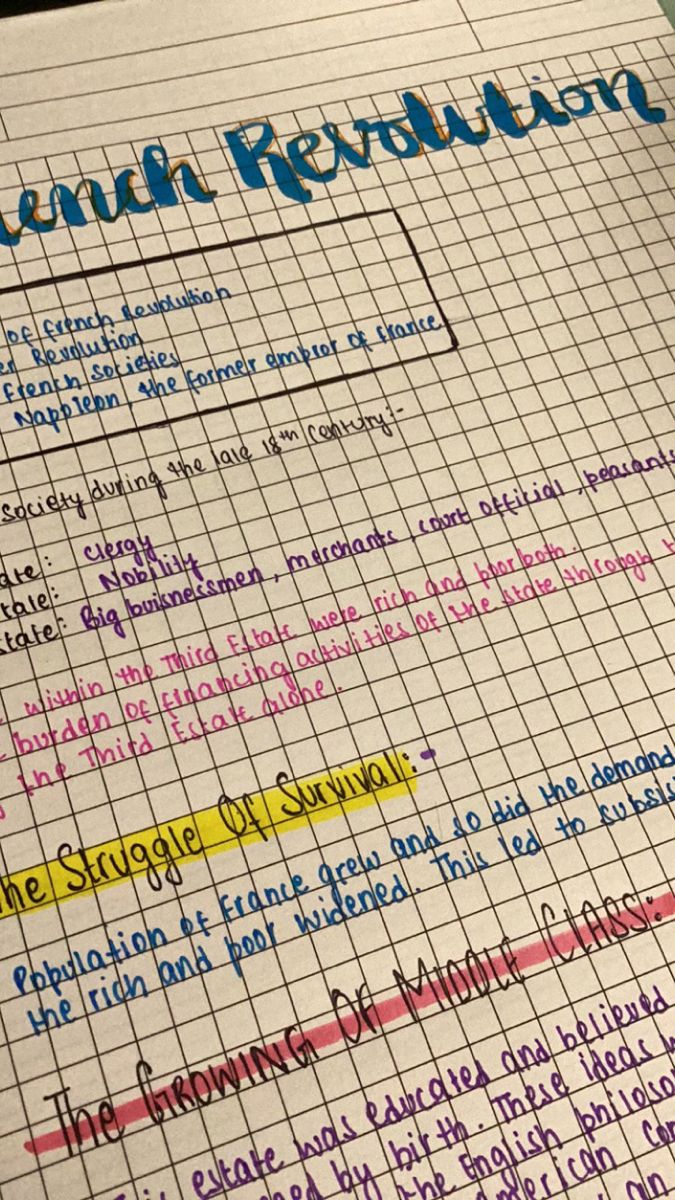 French Revolution
of french Revolution
Revolution
French societies
Napoleon, the former empror of france
society during the late 18th century:-
clergy
Nobility
Big buisnessmen, merchants, court official, peasants
within the Third Estate were rich and poor both.
burden of financing activities of the state through
the Third Estate alone.
The Struggle Of Survival:-
Population of france grew and so did the demand
the rich and poor widened. This led to
THE GROWING OF MIDDLE CLASS:
estate was educated and believed
by birth. These ideas
the English